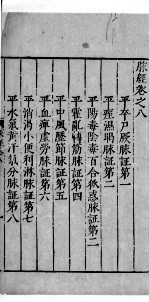 脉經卷之八
平卒尸厥脉證第一
平痓濕暍脉證第二
平陽毒陰毒百合狐惑脉證第三
平霍亂轉筋脉證第四
平中風歷節脉證第五
平血痺虛勞脉證第六
平消渴小便利淋脉證第七
平水氣黃汗氣分脉證第八